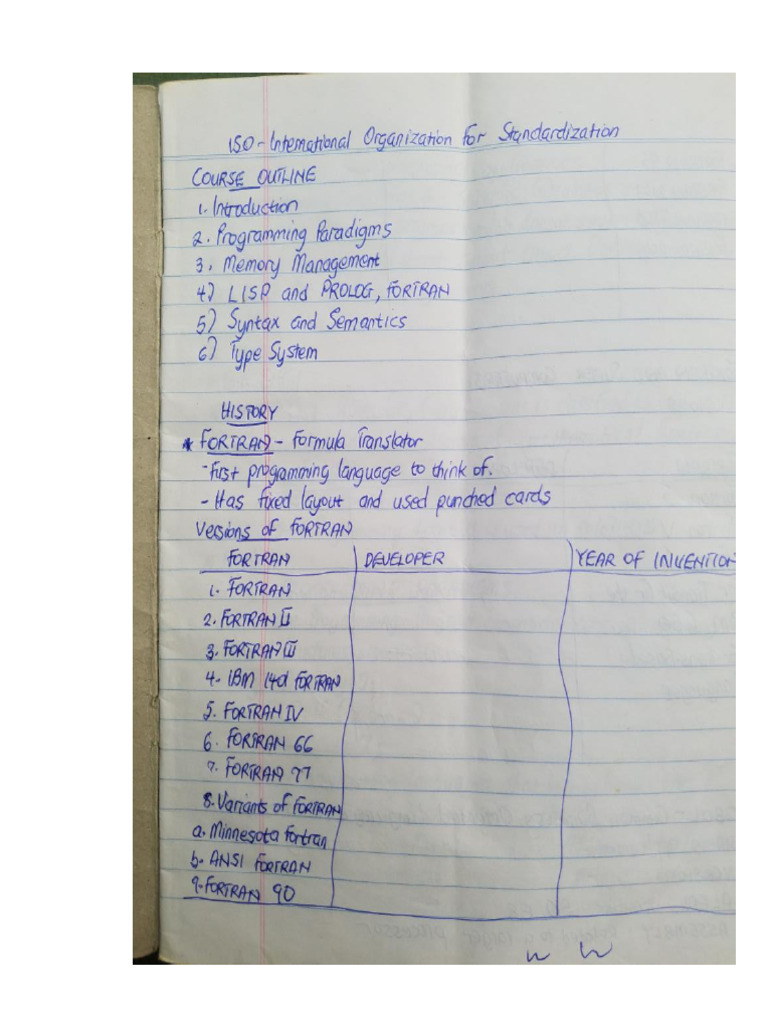 ISO - International Organization for Standardization
COURSE OUTLINE
1. Introduction
2. Programming Paradigms
3. Memory Management
4) LISP and PROLOG, FORTRAN
5) Syntax and Semantics
6) Type System
HISTORY
* FORTRAN - Formula Translator
- First programming language to think of.
- Has fixed layout and used punched cards
Versions of FORTRAN
FORTRAN | DEVELOPER | YEAR OF INVENTION
1. FORTRAN
2. FORTRAN II
3. FORTRAN III
4. IBM 1401 FORTRAN
5. FORTRAN IV
6. FORTRAN 66
7. FORTRAN 77
8. Variants of FORTRAN
a. Minnesota Fortran
b. ANSI FORTRAN
9. FORTRAN 90